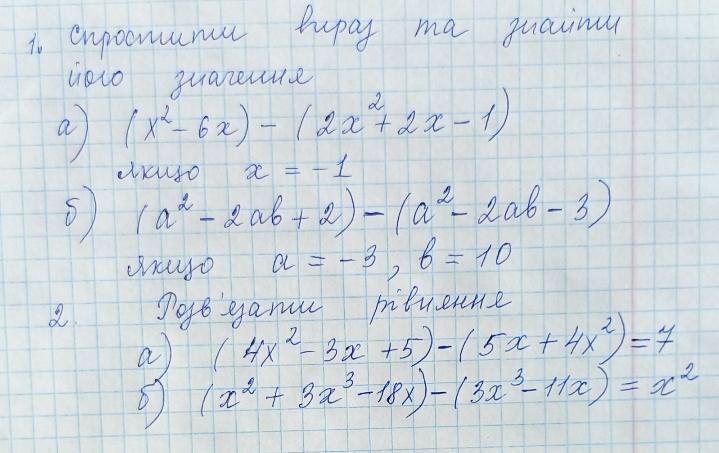 1. Спростити вираз та знайти
його значення
а) (x² - 6x) - (2x² + 2x - 1)
якщо x = -1
б) (a² - 2ab + 2) - (a² - 2ab - 3)
якщо a = -3, b = 10
2. Розв'язати рівняння
а) (4x² - 3x + 5) - (5x + 4x²) = 7
б) (x² + 3x³ - 18x) - (3x³ - 11x) = x²